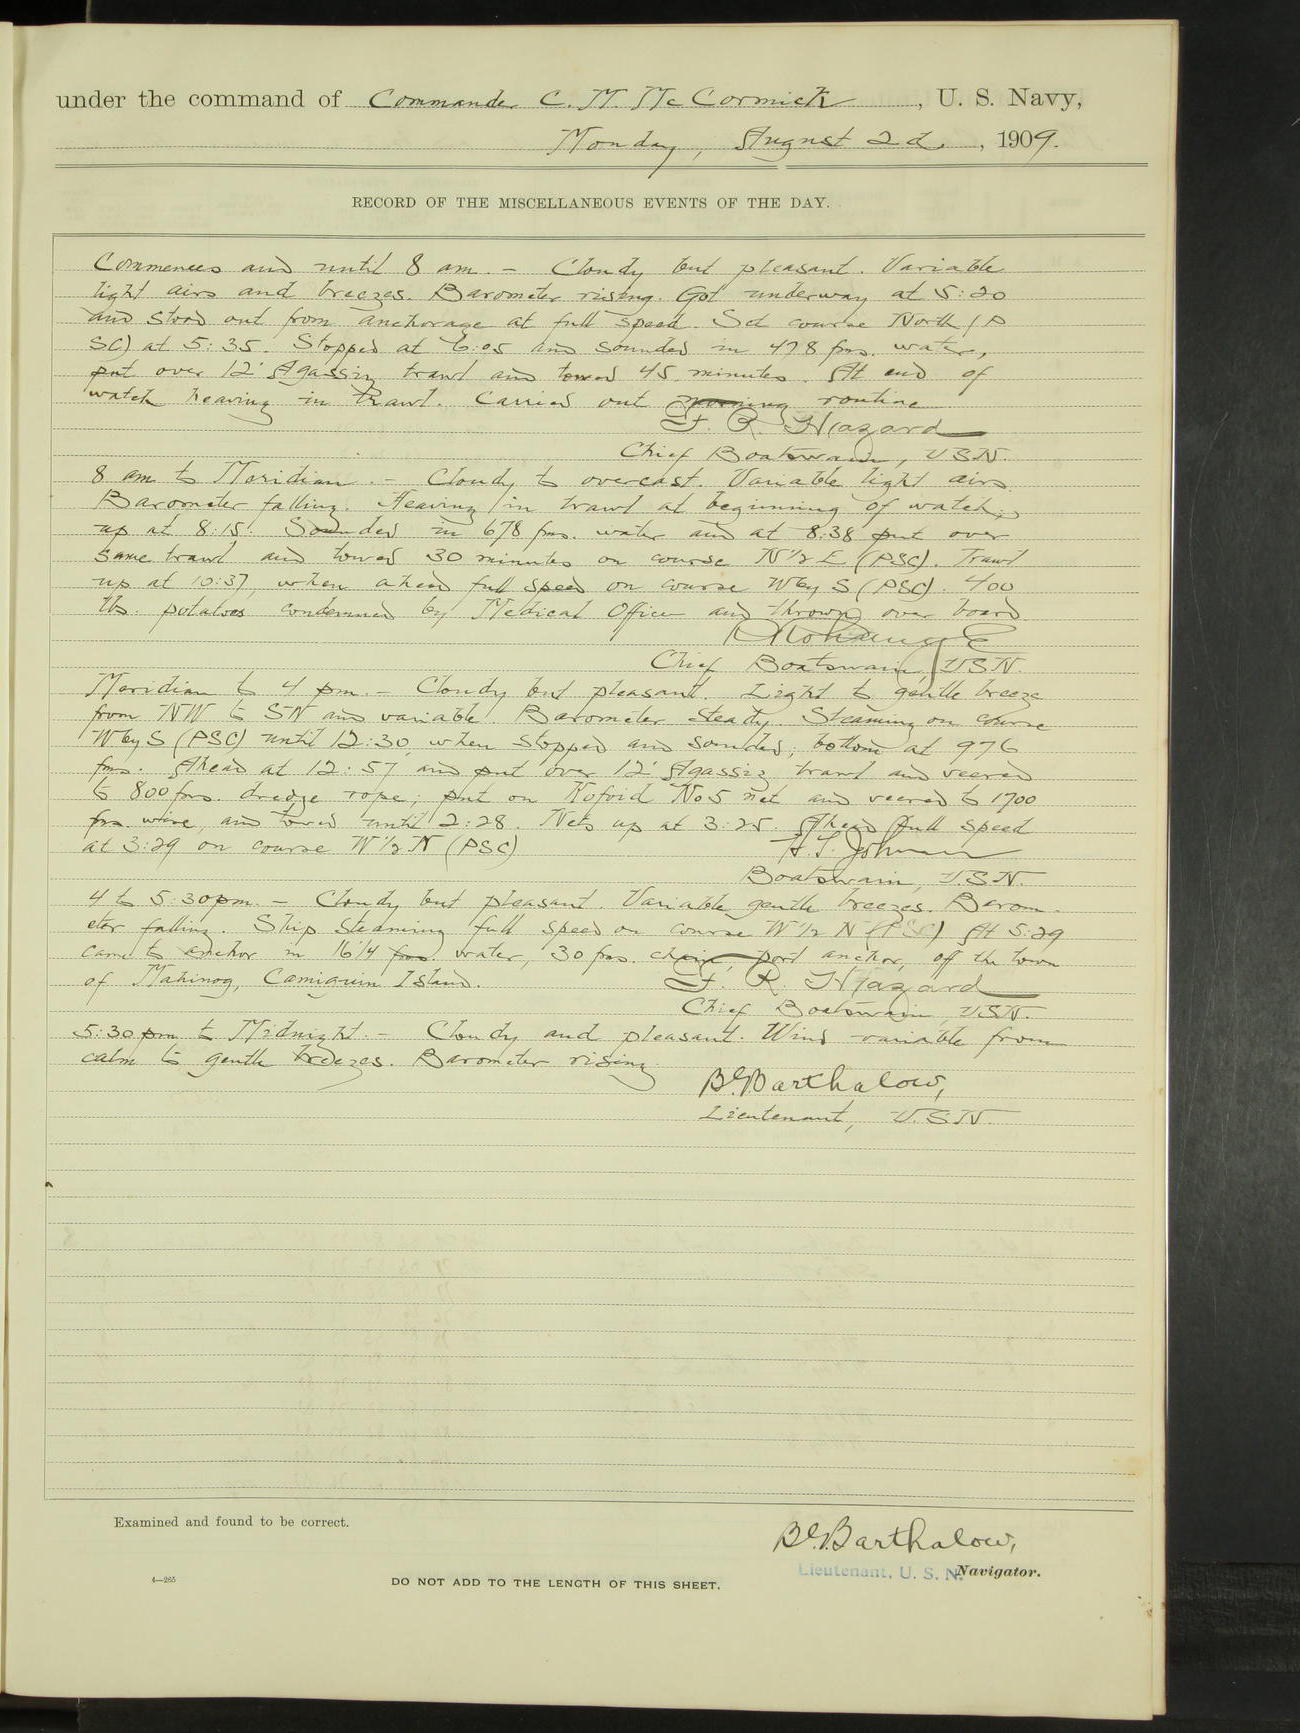 under the command of Commander C. M. McCormick, U. S. Navy,
Monday, August 2d, 1909.
RECORD OF THE MISCELLANEOUS EVENTS OF THE DAY.
Commences and until 8 am. – Cloudy but pleasant. Variable
light airs and breezes. Barometer rising. Got underway at 5:20
and stood out from anchorage at full speed. Set course North (P
SC) at 5:35. Stopped at 6:05 and sounded in 478 fms. water,
put over 12' Agassiz trawl and towed 45 minutes. At end of
watch heaving in trawl. Carried out morning routine
F. R. Hazard
Chief Boatswain, USN.
8 am to Meridian. – Cloudy to overcast. Variable light airs.
Barometer falling. Heaving in trawl at beginning of watch;
up at 8:15. Sounded in 678 fms. water and at 8:38 put over
same trawl and towed 30 minutes on course N½E (PSC). Trawl
up at 10:37, when ahead full speed on course WbyS (PSC). 400
lbs. potatoes condemned by Medical Officer and thrown over board.
Chief Boatswain, USN.
Meridian to 4 pm. – Cloudy but pleasant. Light to gentle breeze
from NW to SW and variable. Barometer steady. Steaming on course
WbyS (PSC) until 12:30, when stopped and sounded; bottom at 976
fms. Ahead at 12:57 and put over 12' Agassiz trawl and veered
to 800 fms. dredge rope; put on Kofoid No 5 net and veered to 1700
fms. wire, and towed until 2:28. Nets up at 3:25. Ahead full speed
at 3:29 on course W½N (PSC)
Boatswain, U.S.N.
4 to 5:30 pm. – Cloudy but pleasant. Variable gentle breezes. Barom-
eter falling. Ship steaming full speed on course W½N (PSC) At 5:29
came to anchor in 16¼ fms. water, 30 fms. chain, port anchor, off the town
of Mahinog, Camiguin Island.
F. R. Hazard
Chief Boatswain, USN.
5:30 pm to Midnight. – Cloudy and pleasant. Wind variable from
calm to gentle breezes. Barometer rising.
Barthalow,
Lieutenant, U.S.N.
Examined and found to be correct.
Barthalow,
Lieutenant, U. S. N.
Navigator.
4—265
DO NOT ADD TO THE LENGTH OF THIS SHEET.